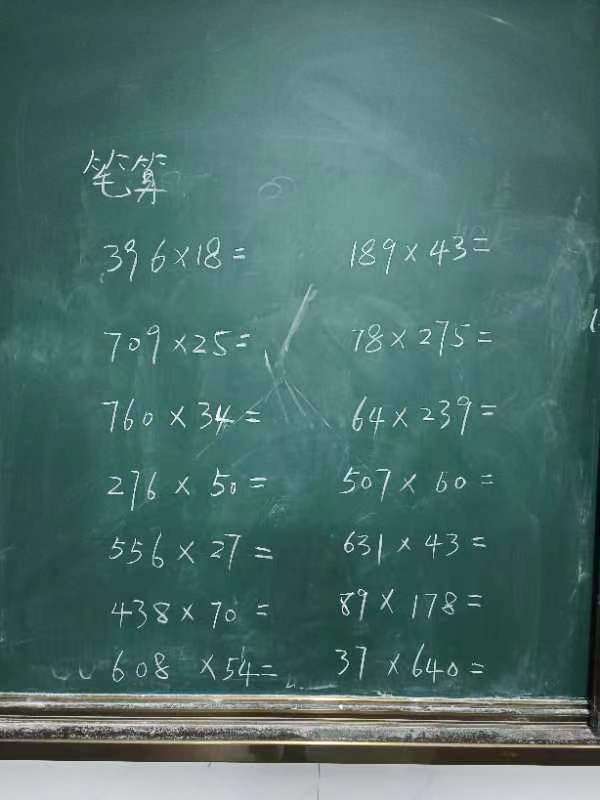 笔算
396×18= 189×43=
709×25= 78×275=
760×34= 64×239=
276×50= 507×60=
556×27= 631×43=
438×70= 89×178=
608×54= 37×640=